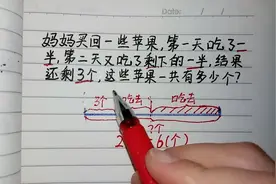 Date: / /
妈妈买回一些苹果,第一天吃了一
半,第二天又吃了剩下的一半,结果
还剩3个,这些苹果一共有多少个?
3个 吃去 吃去
?个
2 6(个)